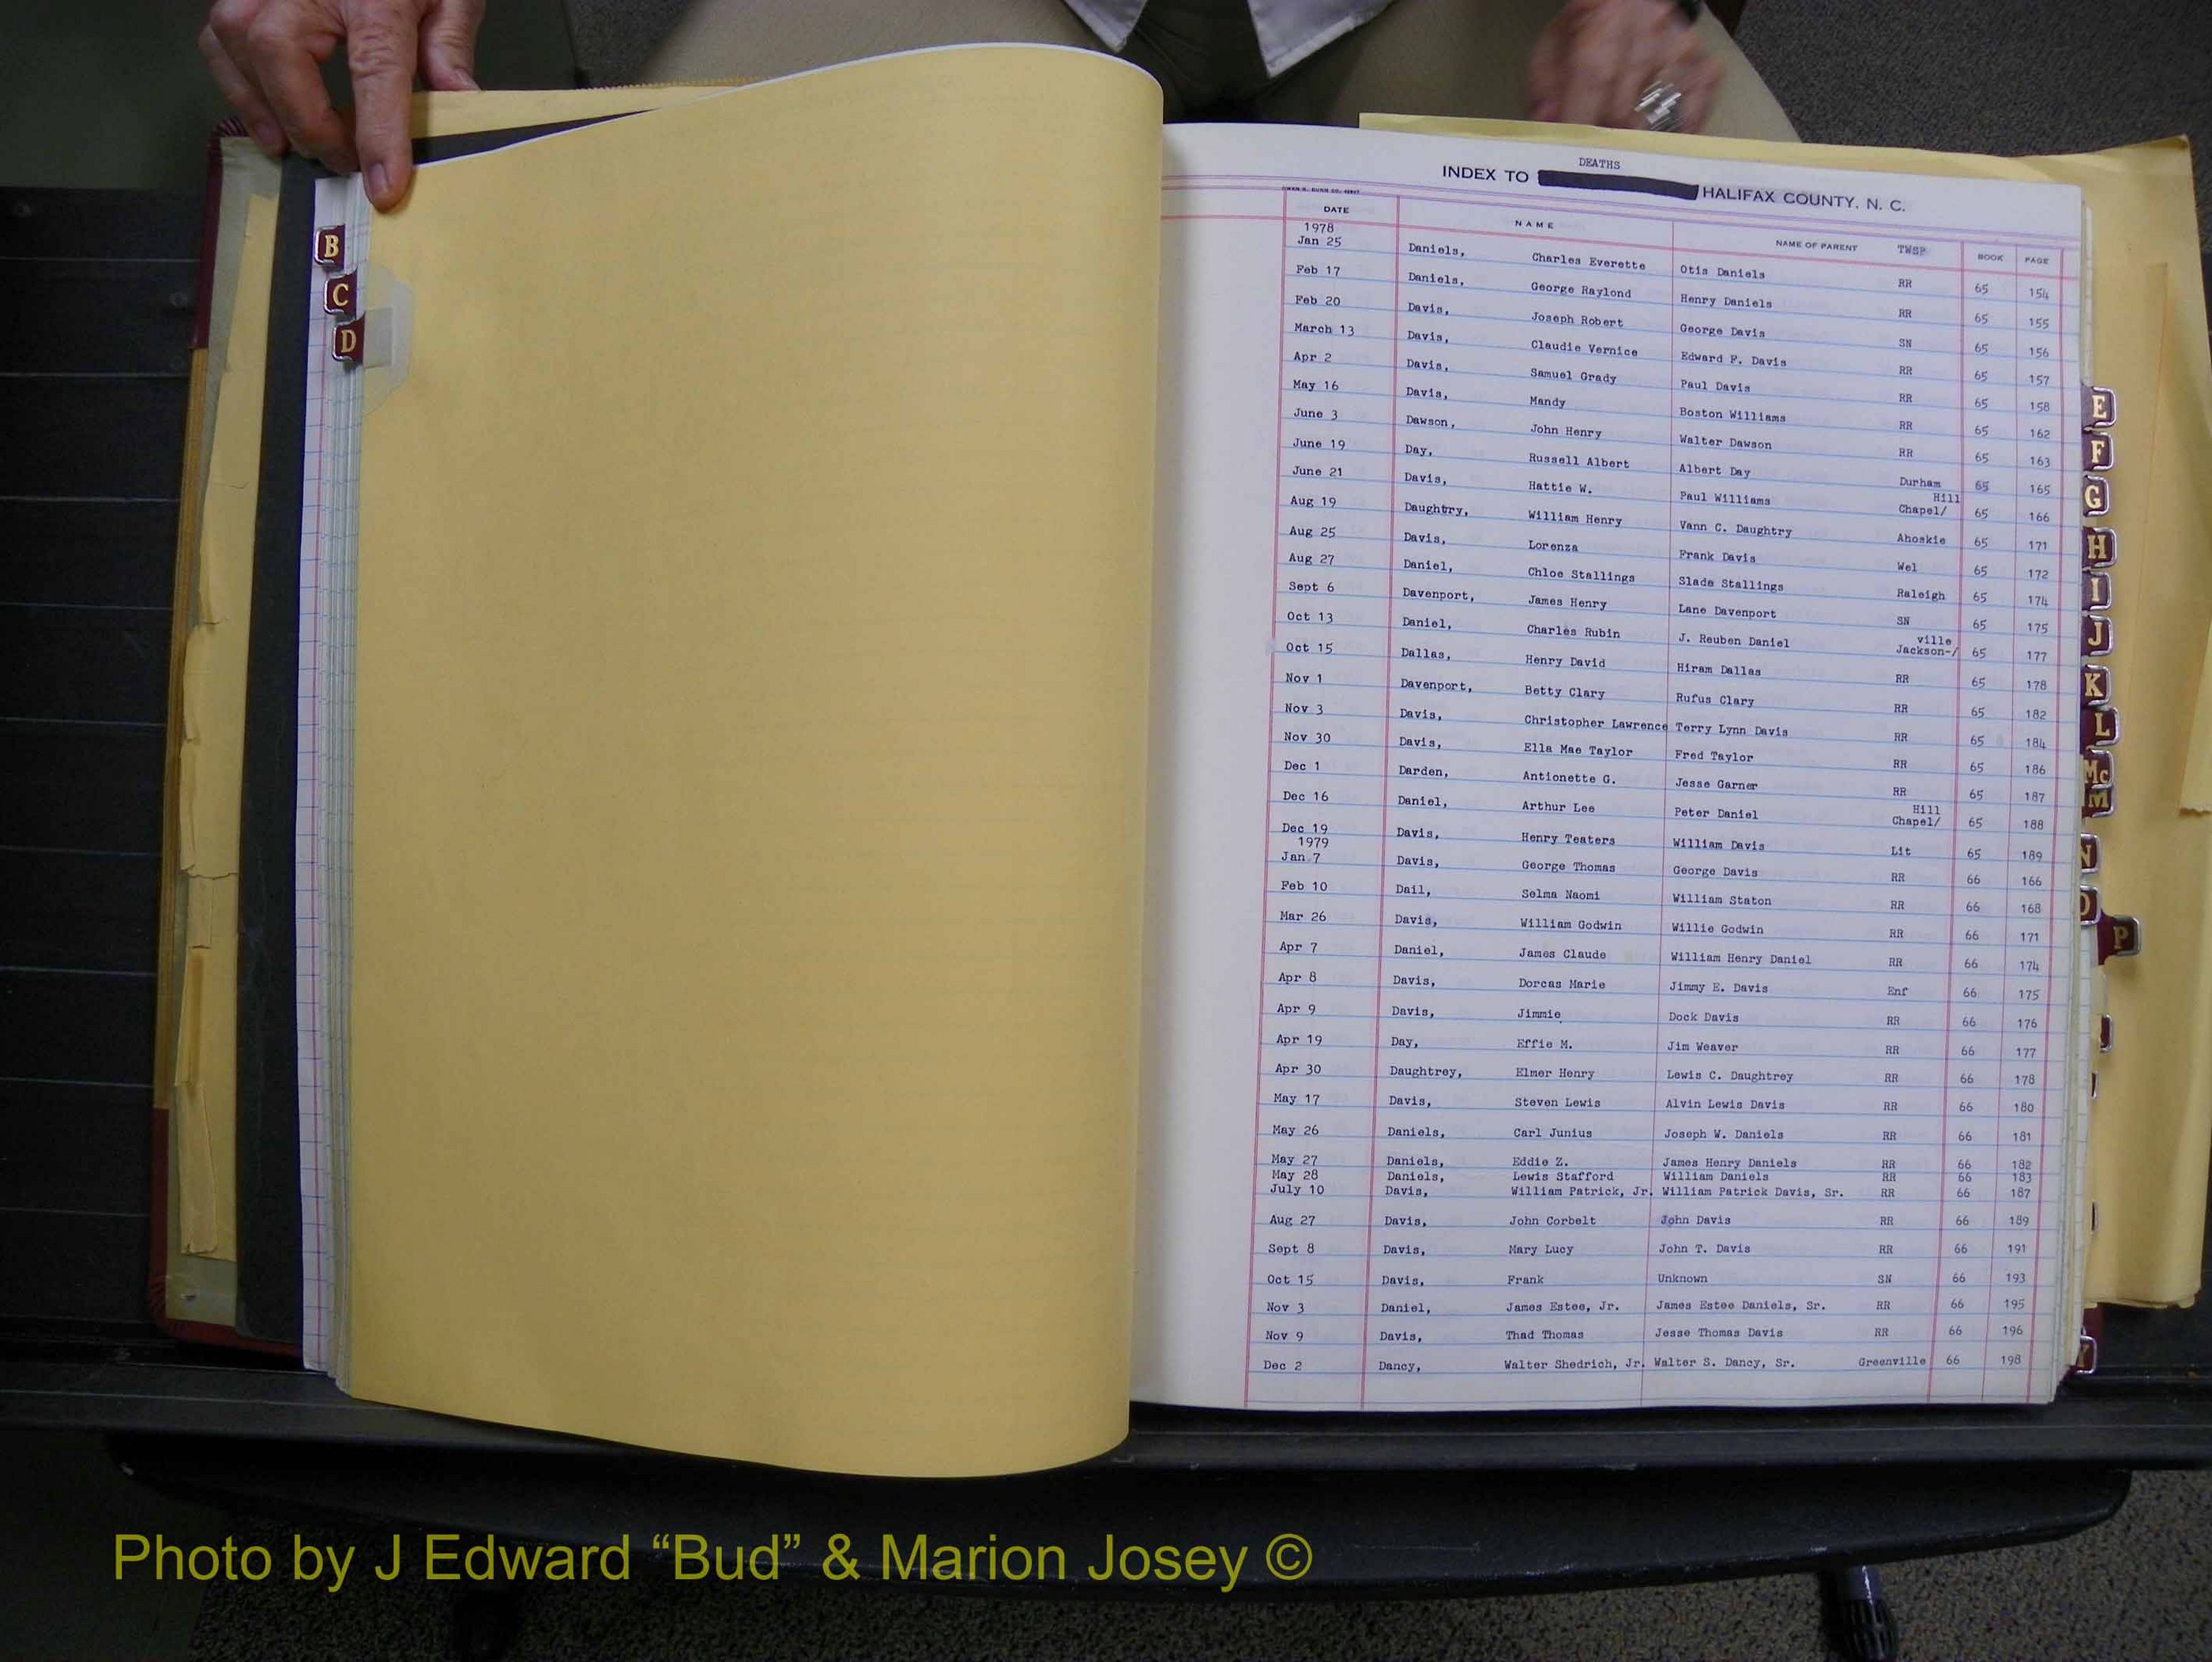 DEATHS
INDEX TO HALIFAX COUNTY, N. C.
OWEN G. DUNN CO.
DATE NAME NAME OF PARENT TWSP BOOK PAGE
1978
Jan 25 Daniels, Charles Everette Otis Daniels RR 65 154
Feb 17 Daniels, George Raylond Henry Daniels RR 65 155
Feb 20 Davis, Joseph Robert George Davis SN 65 156
March 13 Davis, Claudie Vernice Edward F. Davis RR 65 157
Apr 2 Davis, Samuel Grady Paul Davis RR 65 158
May 16 Davis, Mandy Boston Williams RR 65 162
June 3 Dawson, John Henry Walter Dawson RR 65 163
June 19 Day, Russell Albert Albert Day Durham 65 165
June 21 Davis, Hattie W. Paul Williams Chapel/ Hill 65 166
Aug 19 Daughtry, William Henry Vann C. Daughtry Ahoskie 65 171
Aug 25 Davis, Lorenza Frank Davis Wel 65 172
Aug 27 Daniel, Chloe Stallings Slade Stallings Raleigh 65 174
Sept 6 Davenport, James Henry Lane Davenport SN 65 175
Oct 13 Daniel, Charles Rubin J. Reuben Daniel Jackson-/ ville 65 177
Oct 15 Dallas, Henry David Hiram Dallas RR 65 178
Nov 1 Davenport, Betty Clary Rufus Clary RR 65 182
Nov 3 Davis, Christopher Lawrence Terry Lynn Davis RR 65 184
Nov 30 Davis, Ella Mae Taylor Fred Taylor RR 65 186
Dec 1 Darden, Antionette G. Jesse Garner RR 65 187
Dec 16 Daniel, Arthur Lee Peter Daniel Chapel/ Hill 65 188
Dec 19 Davis, Henry Teaters William Davis Lit 65 189
1979
Jan 7 Davis, George Thomas George Davis RR 66 166
Feb 10 Dail, Selma Naomi William Staton RR 66 168
Mar 26 Davis, William Godwin Willie Godwin RR 66 171
Apr 7 Daniel, James Claude William Henry Daniel RR 66 174
Apr 8 Davis, Dorcas Marie Jimmy E. Davis Enf 66 175
Apr 9 Davis, Jimmie Dock Davis RR 66 176
Apr 19 Day, Effie M. Jim Weaver RR 66 177
Apr 30 Daughtrey, Elmer Henry Lewis C. Daughtrey RR 66 178
May 17 Davis, Steven Lewis Alvin Lewis Davis RR 66 180
May 26 Daniels, Carl Junius Joseph W. Daniels RR 66 181
May 27 Daniels, Eddie Z. James Henry Daniels RR 66 182
May 28 Daniels, Lewis Stafford William Daniels RR 66 183
July 10 Davis, William Patrick, Jr. William Patrick Davis, Sr. RR 66 187
Aug 27 Davis, John Corbelt John Davis RR 66 189
Sept 8 Davis, Mary Lucy John T. Davis RR 66 191
Oct 15 Davis, Frank Unknown SN 66 193
Nov 3 Daniel, James Estee, Jr. James Estee Daniels, Sr. RR 66 195
Nov 9 Davis, Thad Thomas Jesse Thomas Davis RR 66 196
Dec 2 Dancy, Walter Shedrich, Jr. Walter S. Dancy, Sr. Greenville 66 198
B
C
D
E
F
G
H
I
J
K
L
Mc
M
N
O
P
Photo by J Edward “Bud” & Marion Josey ©